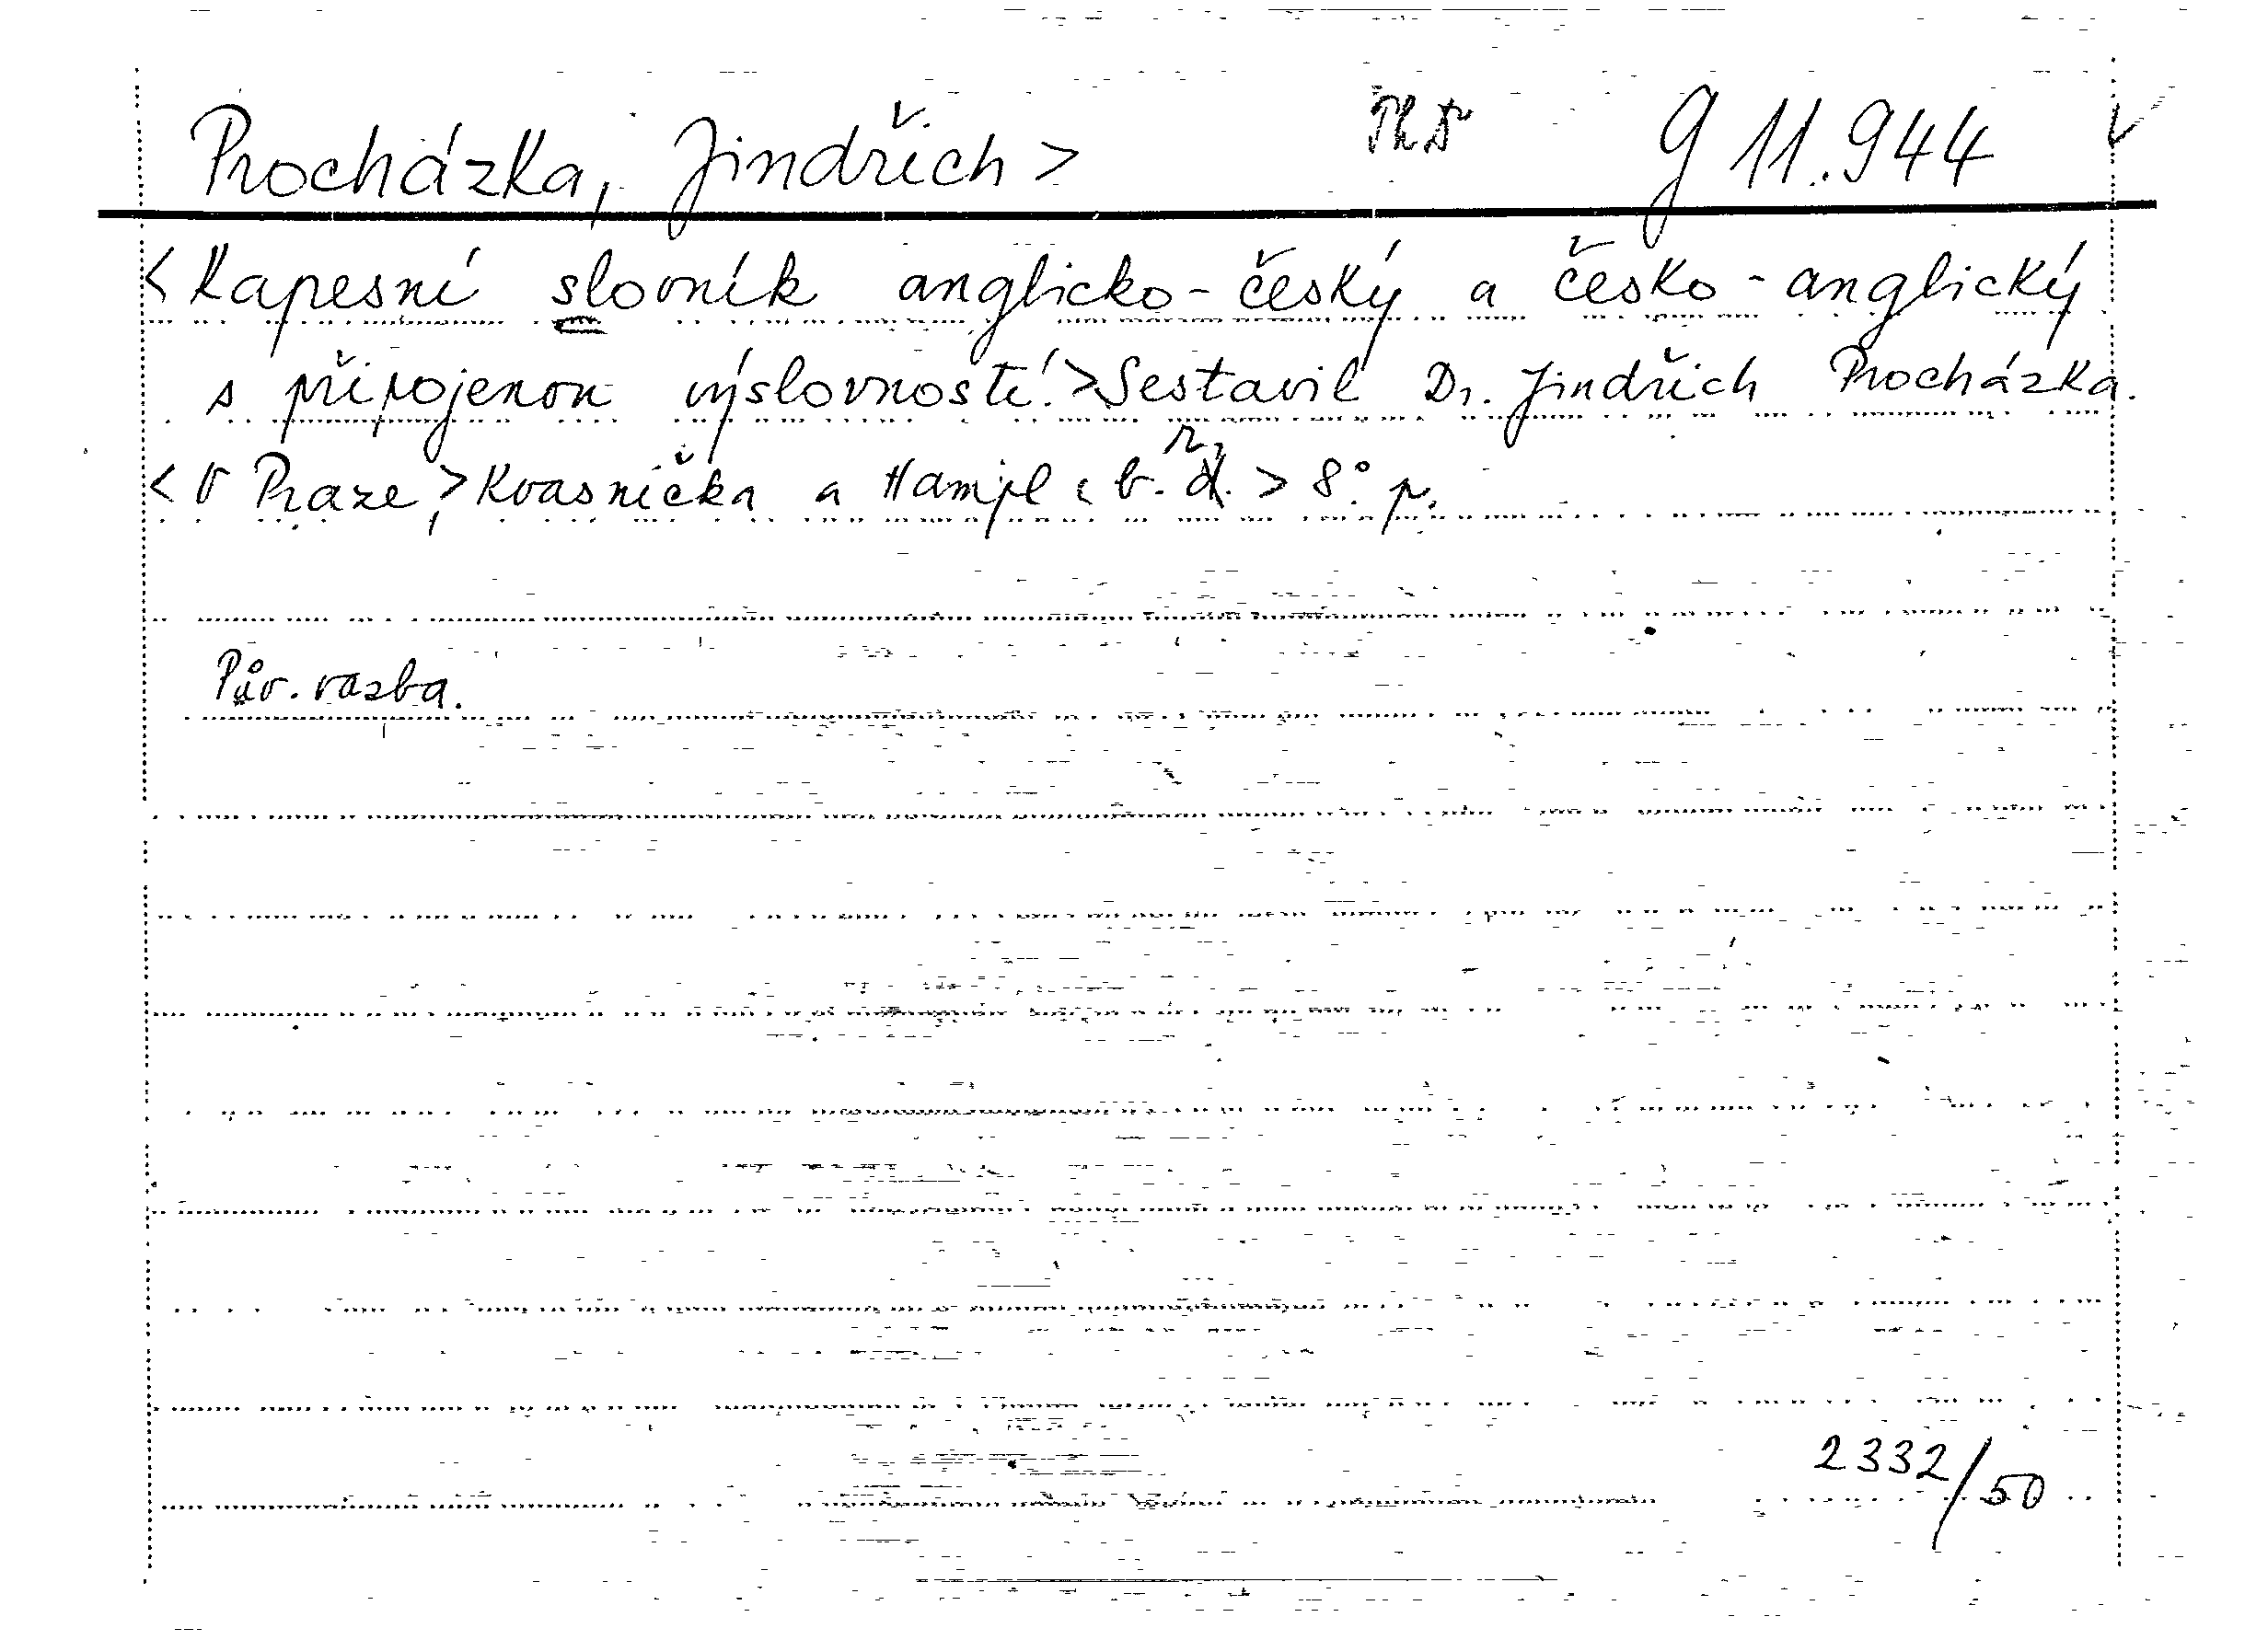 Procházka, Jindřich > PhDr g 11.944
< Kapesní slovník anglicko-český a česko-anglický
s připojenou výslovností. > Sestavil Dr. Jindřich Procházka.
< V Praze, > Kvasnička a Hampl < b. r. > 8° p.
Pův. vazba.
2332/50